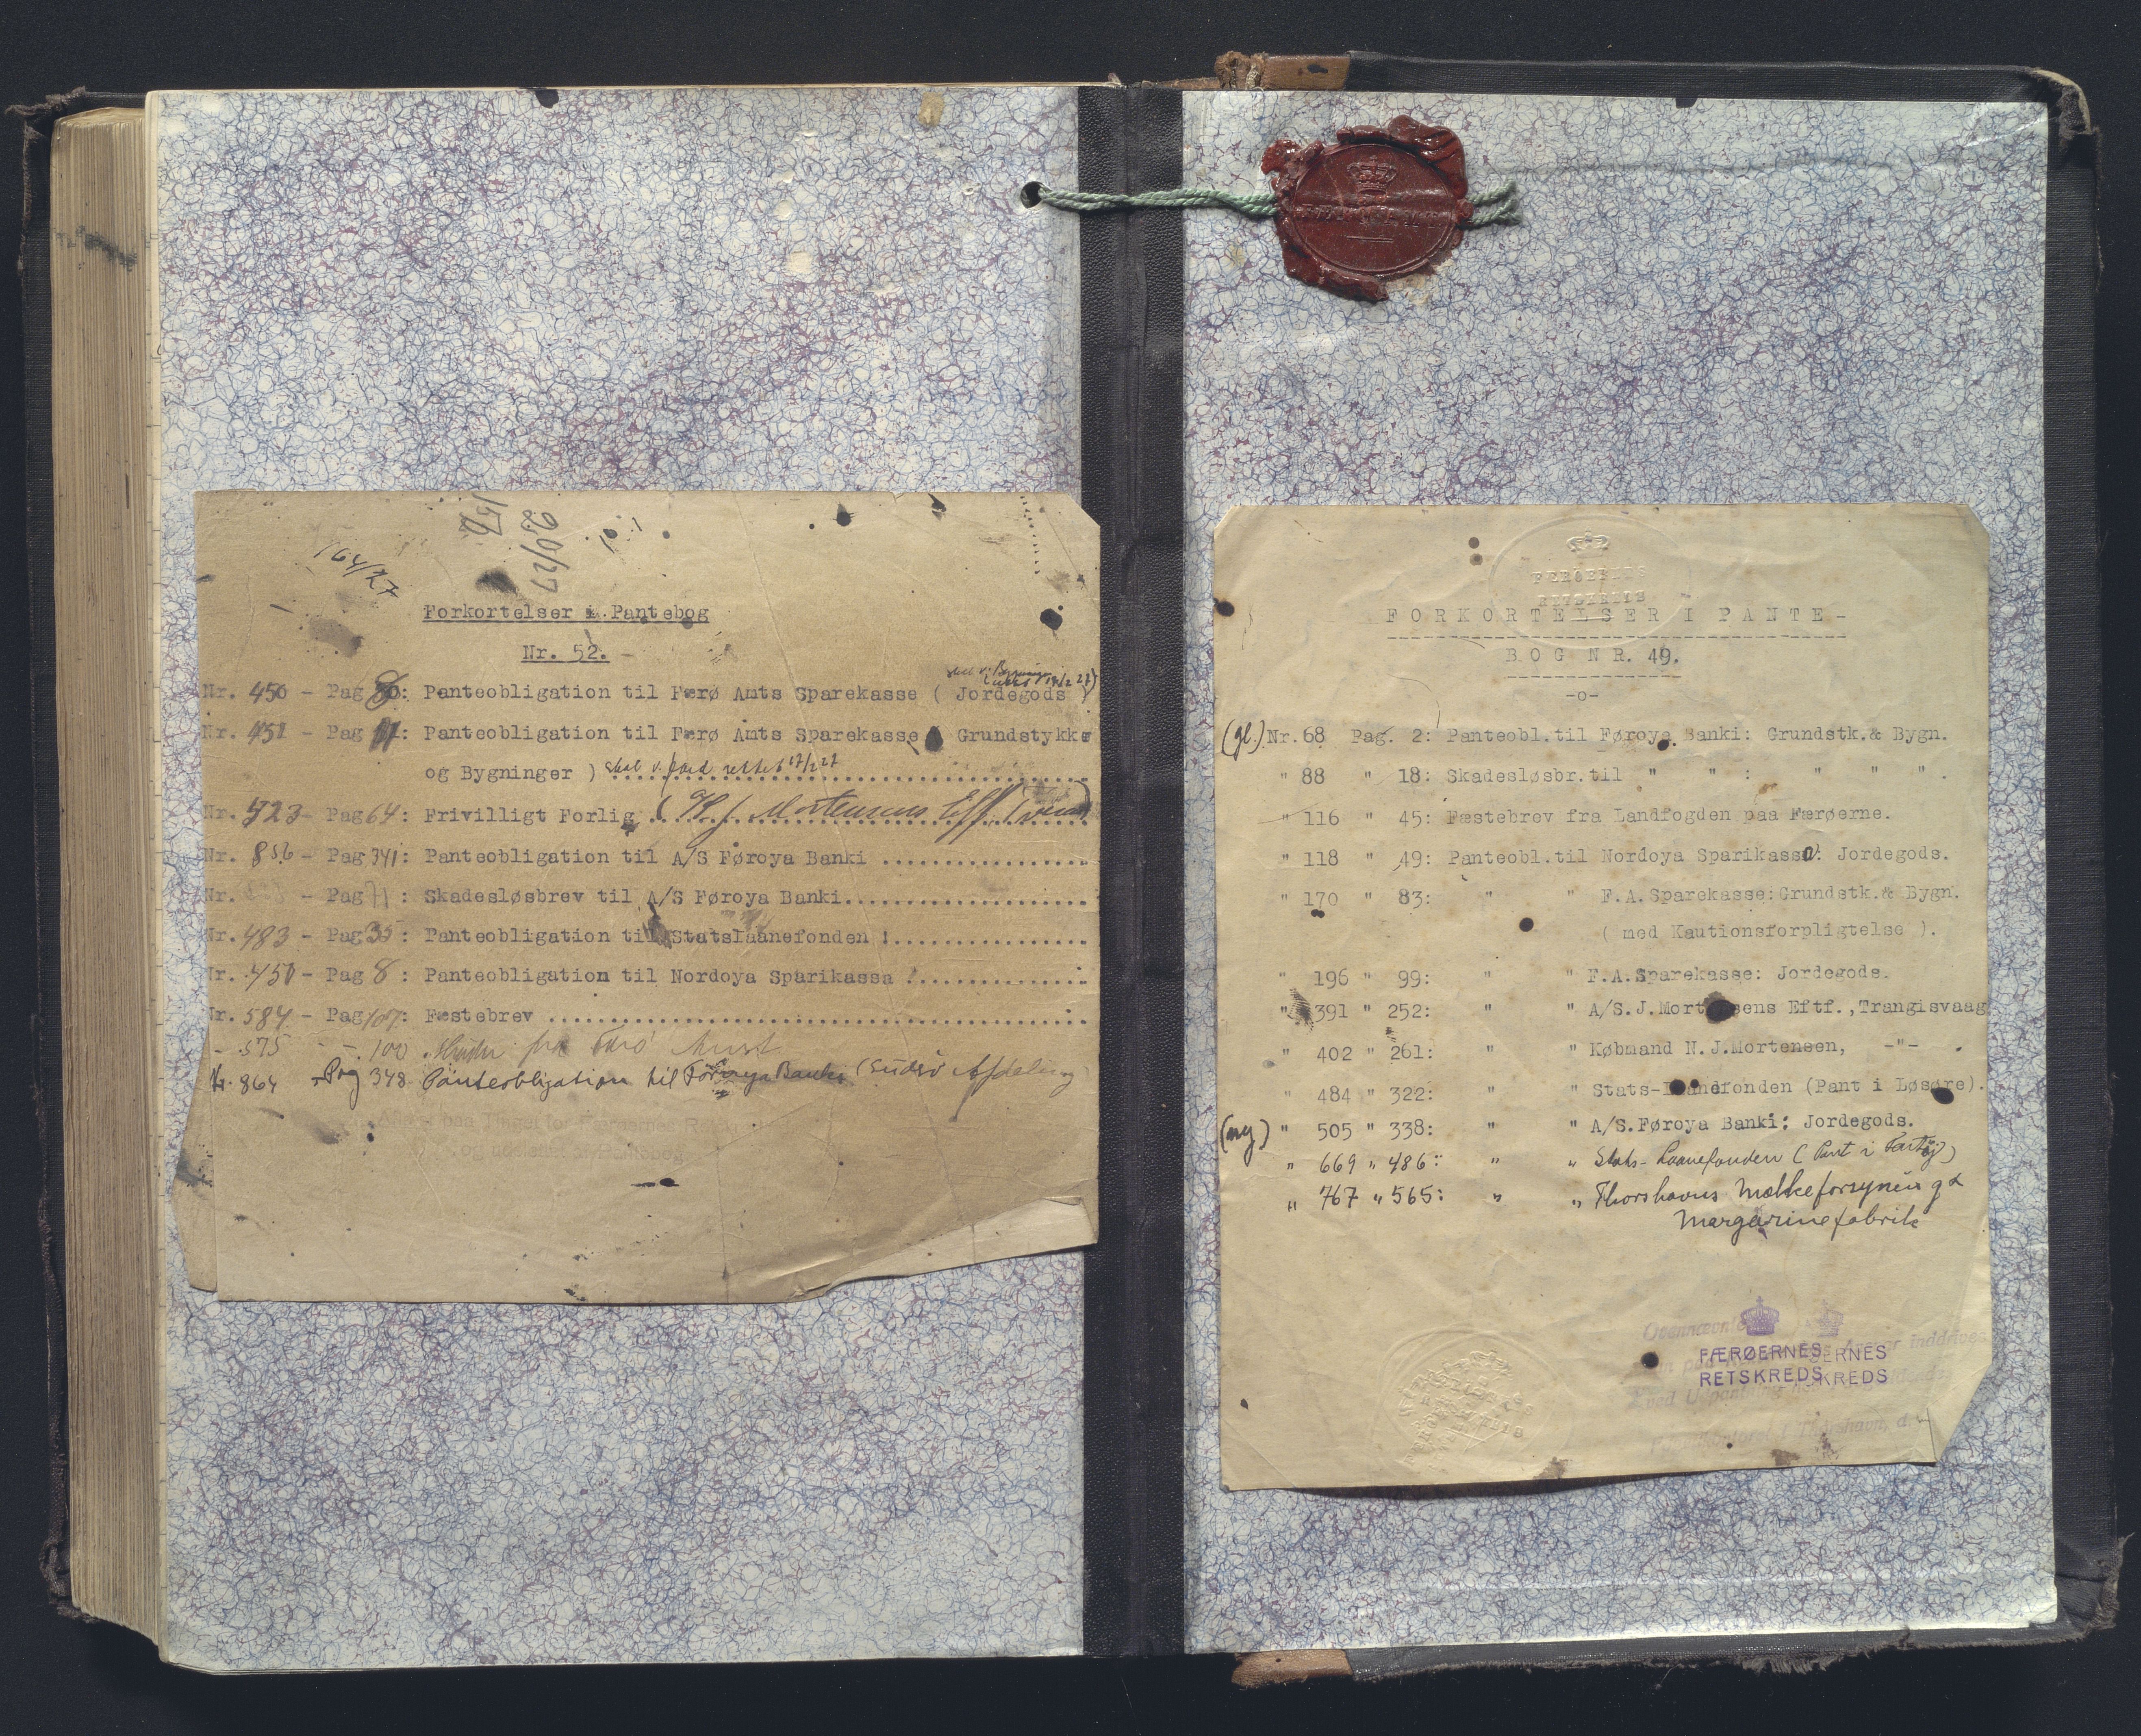 156
20/27
164/27
Forkortelser i Pantebog
Nr. 52.
Nr. 450 - Pag 8: Panteobligation til Færø Amts Sparekasse ( Jordegods )
Nr. 451 - Pag 11: Panteobligation til Færø Amts Sparekasse ( Grundstykke
og Bygninger ) skal v. rettet 17/2 27
Nr. 523 - Pag 64: Frivilligt Forlig ( Mortensens Eff.
Nr. 856 - Pag 341: Panteobligation til A/S Føroya Banki ..................
Nr. - Pag 71: Skadesløsbrev til A/S Føroya Banki.....................
Nr. 483 - Pag 35: Panteobligation til Statslaanefonden !.................
Nr. 450 - Pag 8: Panteobligation til Nordoya Sparikassa !...............
Nr. 584 - Pag 107: Fæstebrev ...............................................
- 575 - - 100 fra Færø Amt
Nr. 864 - Pag 348 Panteobligation til Föroya Banki (Sudrö Afdeling)
paa Tinget for Færøernes R
og
FÆRØERNES
RETSKREDS
FORKORTELSER I PANTE-
BOG NR. 49.
-o-
(gl.) Nr. 68 Pag. 2: Panteobl.til Føroya Banki: Grundstk.& Bygn.
" 88 " 18: Skadesløsbr.til " " : " " " .
" 116 " 45: Fæstebrev fra Landfogden paa Færøerne.
" 118 " 49: Panteobl.til Nordoya Sparikassa: Jordegods.
" 170 " 83: " " F.A.Sparekasse:Grundstk.& Bygn.
( med Kautionsforpligtelse ).
" 196 " 99: " " F.A.Sparekasse: Jordegods.
" 391 " 252: " " A/S.J.Mortensens Eftf.,Trangisvaag
" 402 " 261: " " Købmand N.J.Mortensen, -"- .
" 484 " 322: " " Stats-Laanefonden (Pant i Løsøre).
(ny) " 505 " 338: " " A/S.Føroya Banki: Jordegods.
" 669 " 486: " " Stats-Laanefonden (Pant i Fartöj)
" 767 " 565: " " Thorshavns Mælkeforsyning &
Margarinefabrik
Ovennævnte
inddrives
FÆRØERNES ERNES
RETSKREDS KREDS
ved Udpantning
Thorshavn, d.